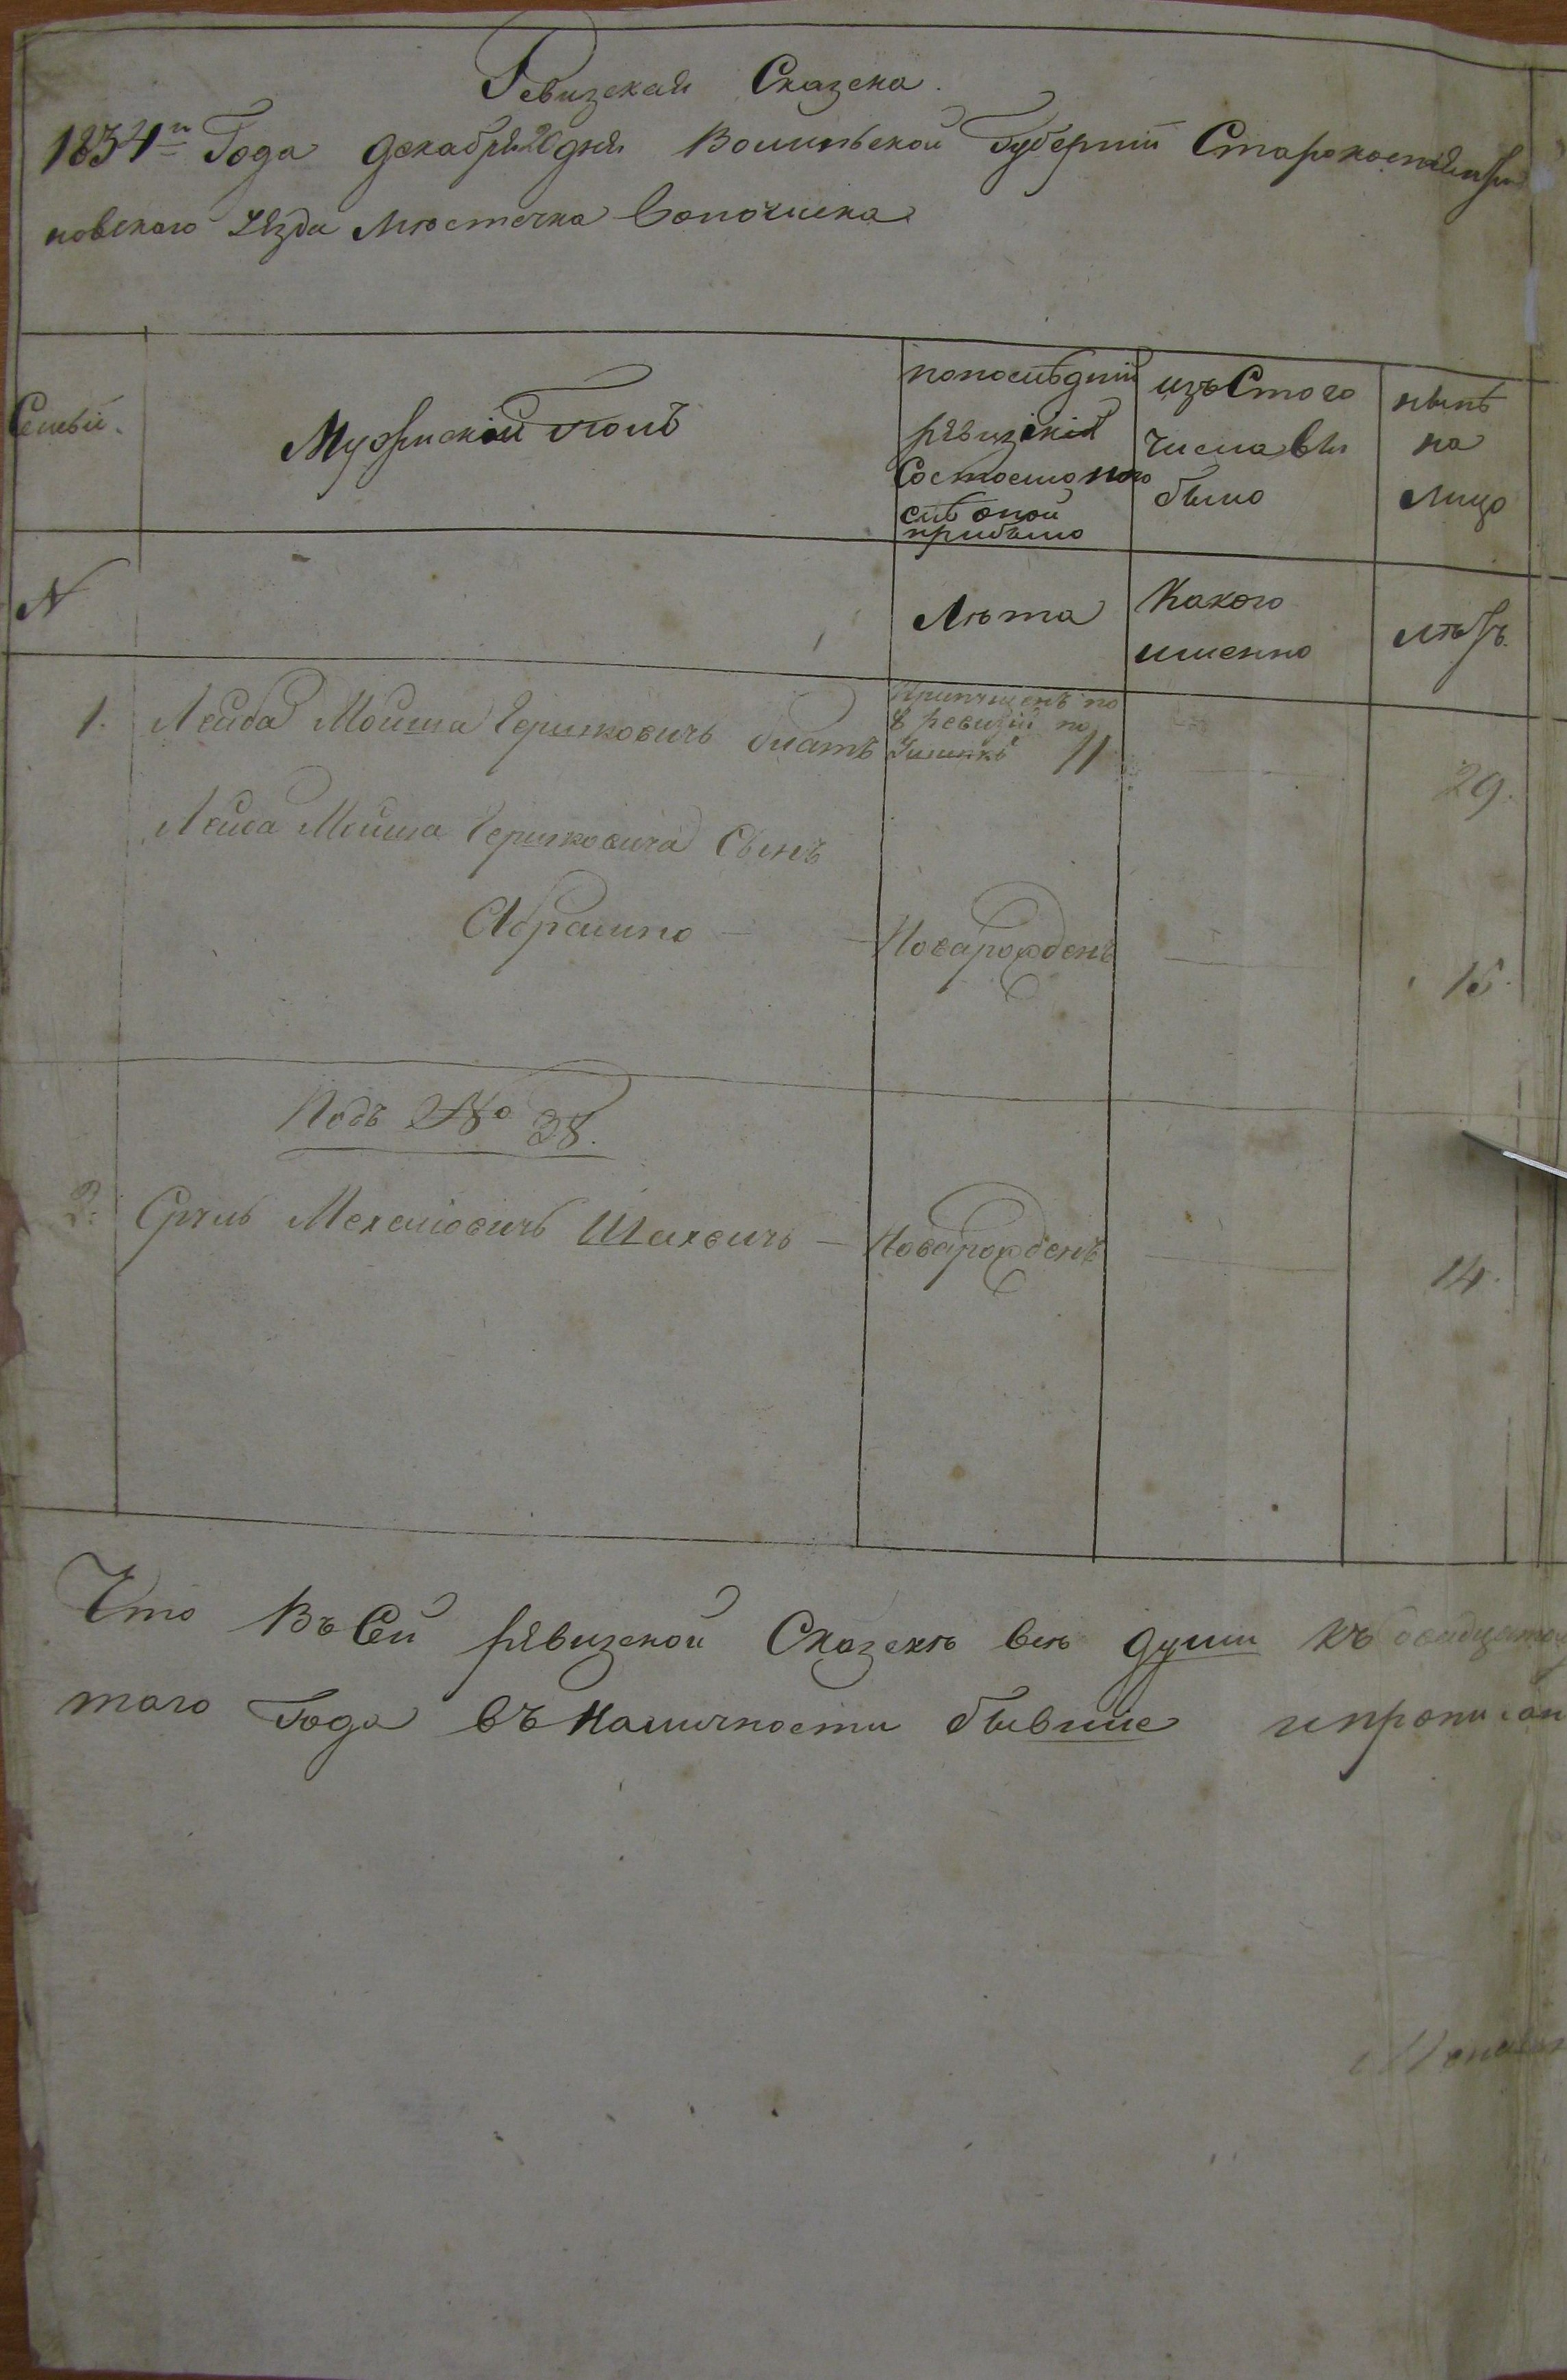 Ревизская Сказска.
1834го Года декабря 20 дня Волинъской Губернiи Староконстянти
новского уезда мюстечка Волочиска
Семьи.
Мужискiй полъ
попослѣднiй
рѣвизiкiя
Состоело ипо
слѣ оной
прибыло
изъ Стого
числа Вы
было
нынѣ
на
лицо
N
Люта
Какого
именно
лѣтъ.
1. Леиба Моиша Гершковичъ Блатъ
Причисленъ по
8 ревизiи по
11
29.
Леиба Моиша Гершковича Сынъ
Абрамко — Новарожденъ — 15.
Подъ No 38.
2. Сруль Мехелiовичъ Шахвичъ — Новарожденъ — 14.
Что Въ Сей рѣвизской Сказскю всю души къ
того Года въ Наличности бывшие ипрописан